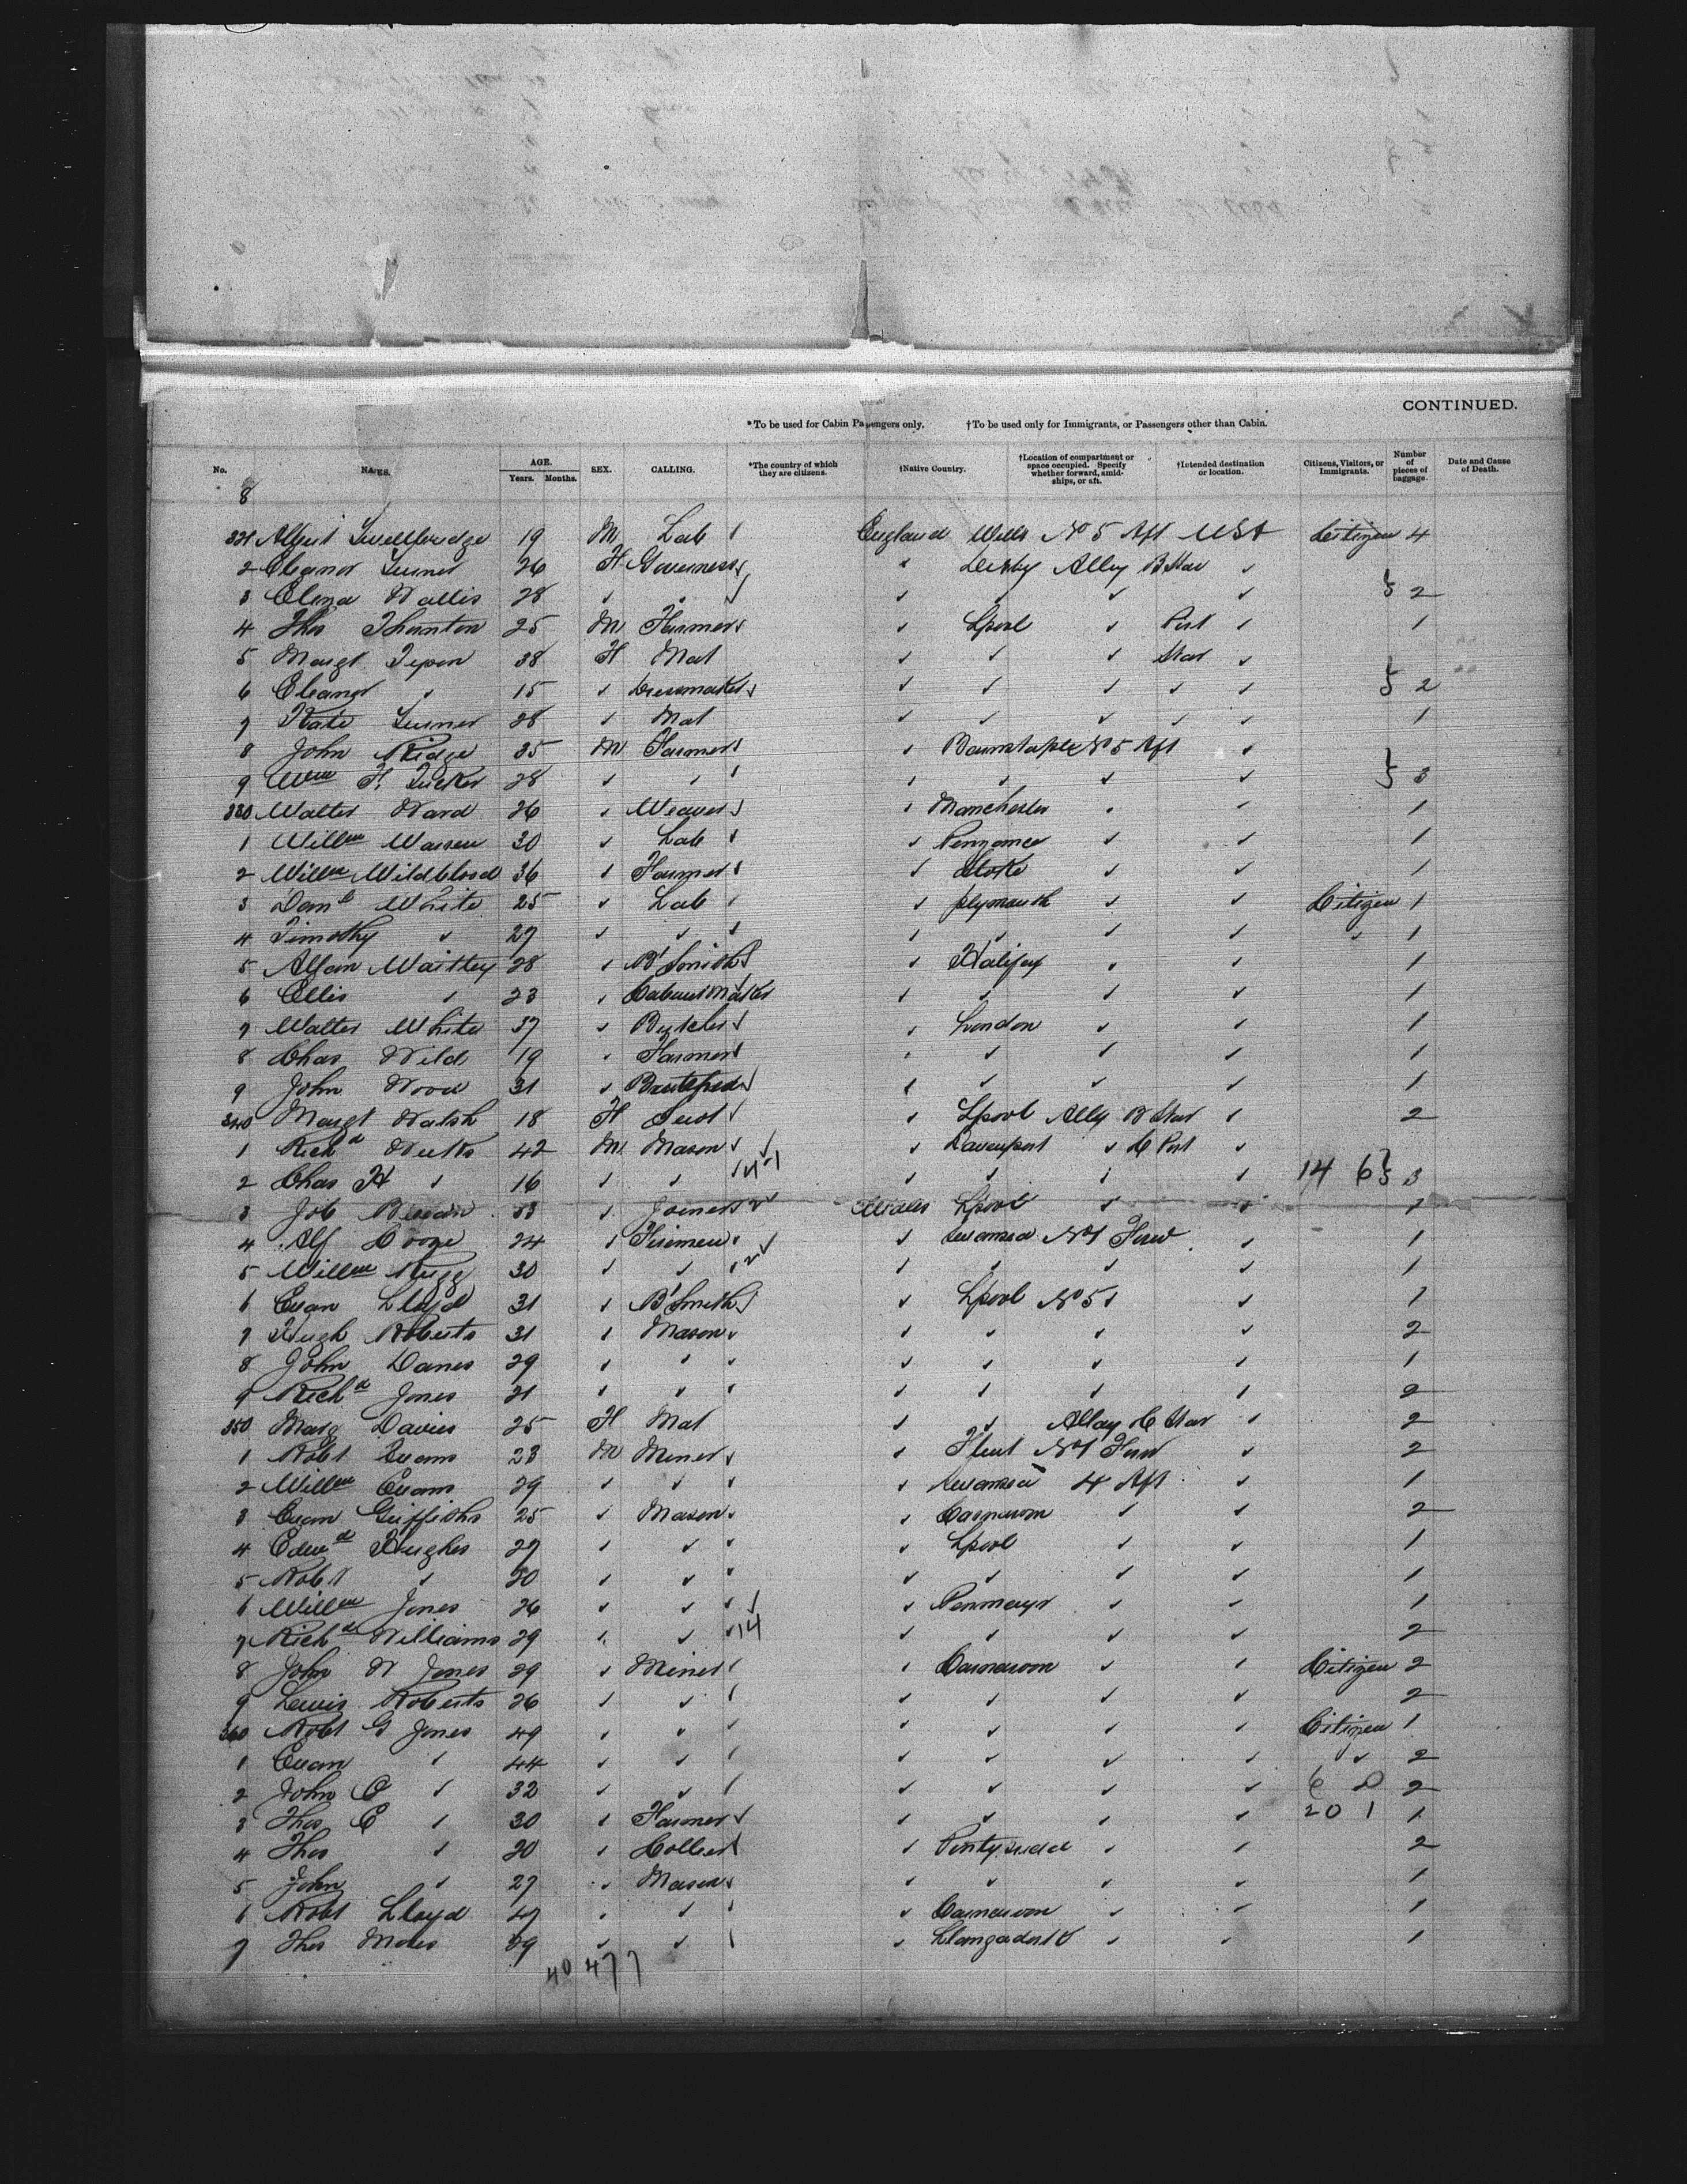 CONTINUED.
*To be used for Cabin Passengers only. †To be used only for Immigrants, or Passengers other than Cabin.
No. NAMES. AGE. Years. Months. SEX. CALLING. *The country of which they are citizens. †Native Country. †Location of compartment or space occupied. Specify whether forward, amidships, or aft. †Intended destination or location. Citizens, Visitors, or Immigrants. Number of pieces of baggage. Date and Cause of Death.
8
321 Albert 19 M Lab England Wells No 5 Aft USA Citizen 4
2 Eleanor Turner 26 F Governess ✓ Derby Alley B Star ✓
3 Eliza Wallis 28 ✓ ✓ ✓ ✓ ✓ ✓ } 2
4 Thos Thornton 25 M Farmer ✓ Lpool ✓ Port ✓ 1
5 Margt 38 F Mat ✓ ✓ ✓ Star ✓
6 Eleanor ✓ 15 ✓ Dressmaker ✓ ✓ ✓ ✓ ✓ } 2
7 Kate Turner 28 ✓ Mat ✓ ✓ ✓ ✓ ✓ 1
8 John Ridge 35 M Farmer ✓ Barnstaple No 5 Aft ✓
9 Wm H. Tucker 28 ✓ ✓ ✓ ✓ ✓ ✓ } 3
330 Walter Ward 26 ✓ Weaver ✓ Manchester ✓ ✓ 1
1 Willm Warren 30 ✓ Lab ✓ Penzance ✓ ✓ 1
2 Willm Wildblood 36 ✓ Farmer ✓ Stoke ✓ ✓ 1
3 Danl White 25 ✓ Lab ✓ Plymouth ✓ ✓ Citizen 1
4 Timothy ✓ 27 ✓ ✓ ✓ ✓ ✓ ✓ ✓ 1
5 Allan Waittey 28 ✓ B'Smith ✓ Halifax ✓ ✓ 1
6 Ellis ✓ 23 ✓ Cabinet Maker ✓ ✓ ✓ ✓ 1
7 Walter White 37 ✓ Butcher ✓ London ✓ ✓ 1
8 Chas Wild 19 ✓ Farmer ✓ ✓ ✓ ✓ 1
9 John Wood 31 ✓ ✓ ✓ ✓ ✓ 1
340 Margt Walsh 18 F Servt ✓ Lpool Alley B Star ✓ 2
1 Richd 42 M Mason ✓ Davenport ✓ C Port ✓
2 Chas H ✓ 16 ✓ ✓ ✓ ✓ ✓ ✓ 14 6 } 3
3 Job 33 ✓ Joiner Wales Lpool ✓ ✓ 1
4 Alf 24 ✓ Firemen ✓ Swansea No 1 Forw ✓ 1
5 Willm 30 ✓ ✓ ✓ ✓ ✓ ✓ 1
6 Evan Lloyd 31 ✓ B'Smith ✓ Lpool No 5 ✓ 1
7 Hugh Roberts 31 ✓ Mason ✓ ✓ ✓ ✓ 2
8 John Davies 29 ✓ ✓ ✓ ✓ ✓ ✓ 1
9 Richd Jones 21 ✓ ✓ ✓ ✓ ✓ ✓ 2
350 Marg Davies 25 F Mat ✓ ✓ Alley C Star ✓ 2
1 Robt Evans 23 M Miner ✓ Flint No 1 Forw ✓ 2
2 Willm Evans 29 ✓ ✓ ✓ Swansea 4 Aft ✓ 1
3 Evan Griffiths 25 ✓ Mason ✓ Carnarvon ✓ ✓ 2
4 Edwd Hughes 27 ✓ ✓ ✓ Lpool ✓ ✓ 1
5 Robt ✓ 20 ✓ ✓ ✓ ✓ ✓ ✓ 1
6 Willm Jones 26 ✓ ✓ ✓ ✓ ✓ 1
7 Richd Williams 29 ✓ ✓ 14 ✓ ✓ ✓ ✓ 2
8 John W Jones 29 ✓ Miner ✓ Carnarvon ✓ ✓ Citizen 2
9 Lewis Roberts 26 ✓ ✓ ✓ ✓ ✓ ✓ 2
360 Robt G Jones 49 ✓ ✓ ✓ ✓ ✓ ✓ Citizen 1
1 Evan ✓ 44 ✓ ✓ ✓ ✓ ✓ ✓ ✓ 2
2 John O ✓ 32 ✓ ✓ ✓ ✓ ✓ ✓ 2
3 Thos E ✓ 30 ✓ Farmer ✓ ✓ ✓ ✓ 20 1 1
4 Thos ✓ 20 ✓ Collier ✓ ✓ ✓ 2
5 John ✓ 27 ✓ Mason ✓ ✓ ✓ ✓ 1
6 Robt Lloyd 47 ✓ ✓ ✓ Carnarvon ✓ ✓ 1
7 Thos 29 ✓ ✓ ✓ ✓ ✓ 1
40 47 7